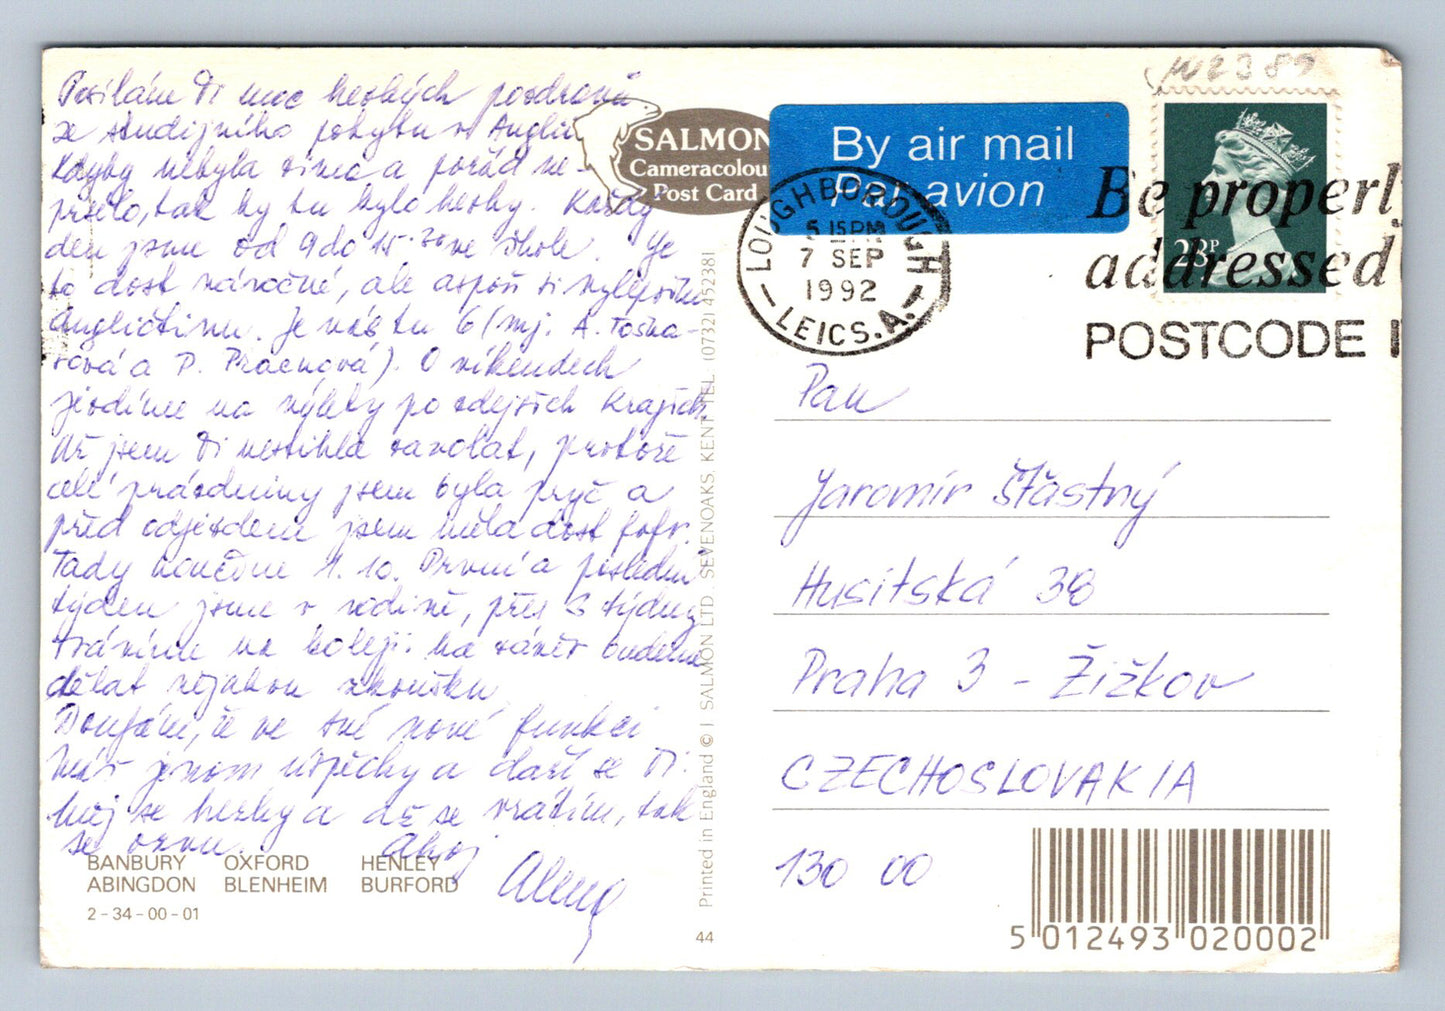 Posílám Ti moc hezkých pozdravů
ze studijního pobytu v Anglii.
Kdyby nebyla zima a pořád ne-
pršelo, tak by tu bylo hezky. Každý
den jsme od 9 do 15.30 ve škole. Je
to dost náročné, ale aspoň si vylepším
angličtinu. Je nás tu 6 (mj. A.
a P. Pracnová). O víkendech
jezdíme na výlety po zdejších krajích.
Už jsem Ti nestihla zavolat, protože
celé prázdniny jsem byla pryč a
před odjezdem jsem měla dost fofr.
Tady končíme 1. 10. První a poslední
týden jsme v rodině, přes 3 týdny
trávíme na koleji. Na závěr budeme
dělat nějakou zkoušku.
Doufám, že ve své nové funkci
máš jenom úspěchy a daří se Ti.
Měj se hezky a až se vrátím, tak
se ozvu. Ahoj
Alena
SALMON
Cameracolour
Post Card
By air mail
Par avion
LOUGHBOROUGH
5 15 PM
7 SEP
1992
LEICS.
28P
Be properly
addressed
POSTCODE I
Pan
Jaromír Šťastný
Husitská 38
Praha 3 - Žižkov
CZECHOSLOVAKIA
130 00
BANBURY OXFORD HENLEY
ABINGDON BLENHEIM BURFORD
2-34-00-01
44
Printed in England © J SALMON LTD. SEVENOAKS, KENT TEL: (0732) 452381
5 012493 020002